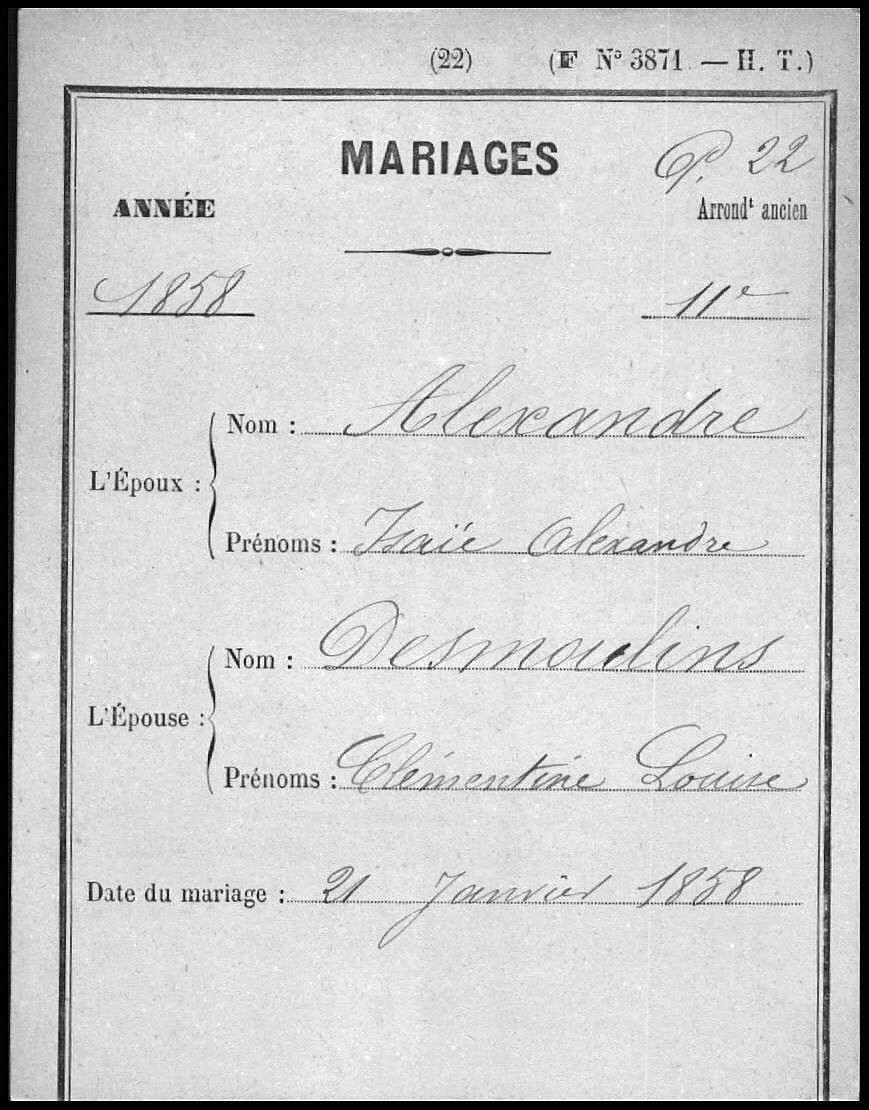 (22) (F Nº 3871 — H. T.)
MARIAGES P. 22
ANNÉE Arrondt ancien
1858 11e
Nom : Alexandre
L'Époux :
Prénoms : Isaïe Alexandre
Nom : Desmoulins
L'Épouse :
Prénoms : Clémentine Louise
Date du mariage : 21 Janvier 1858